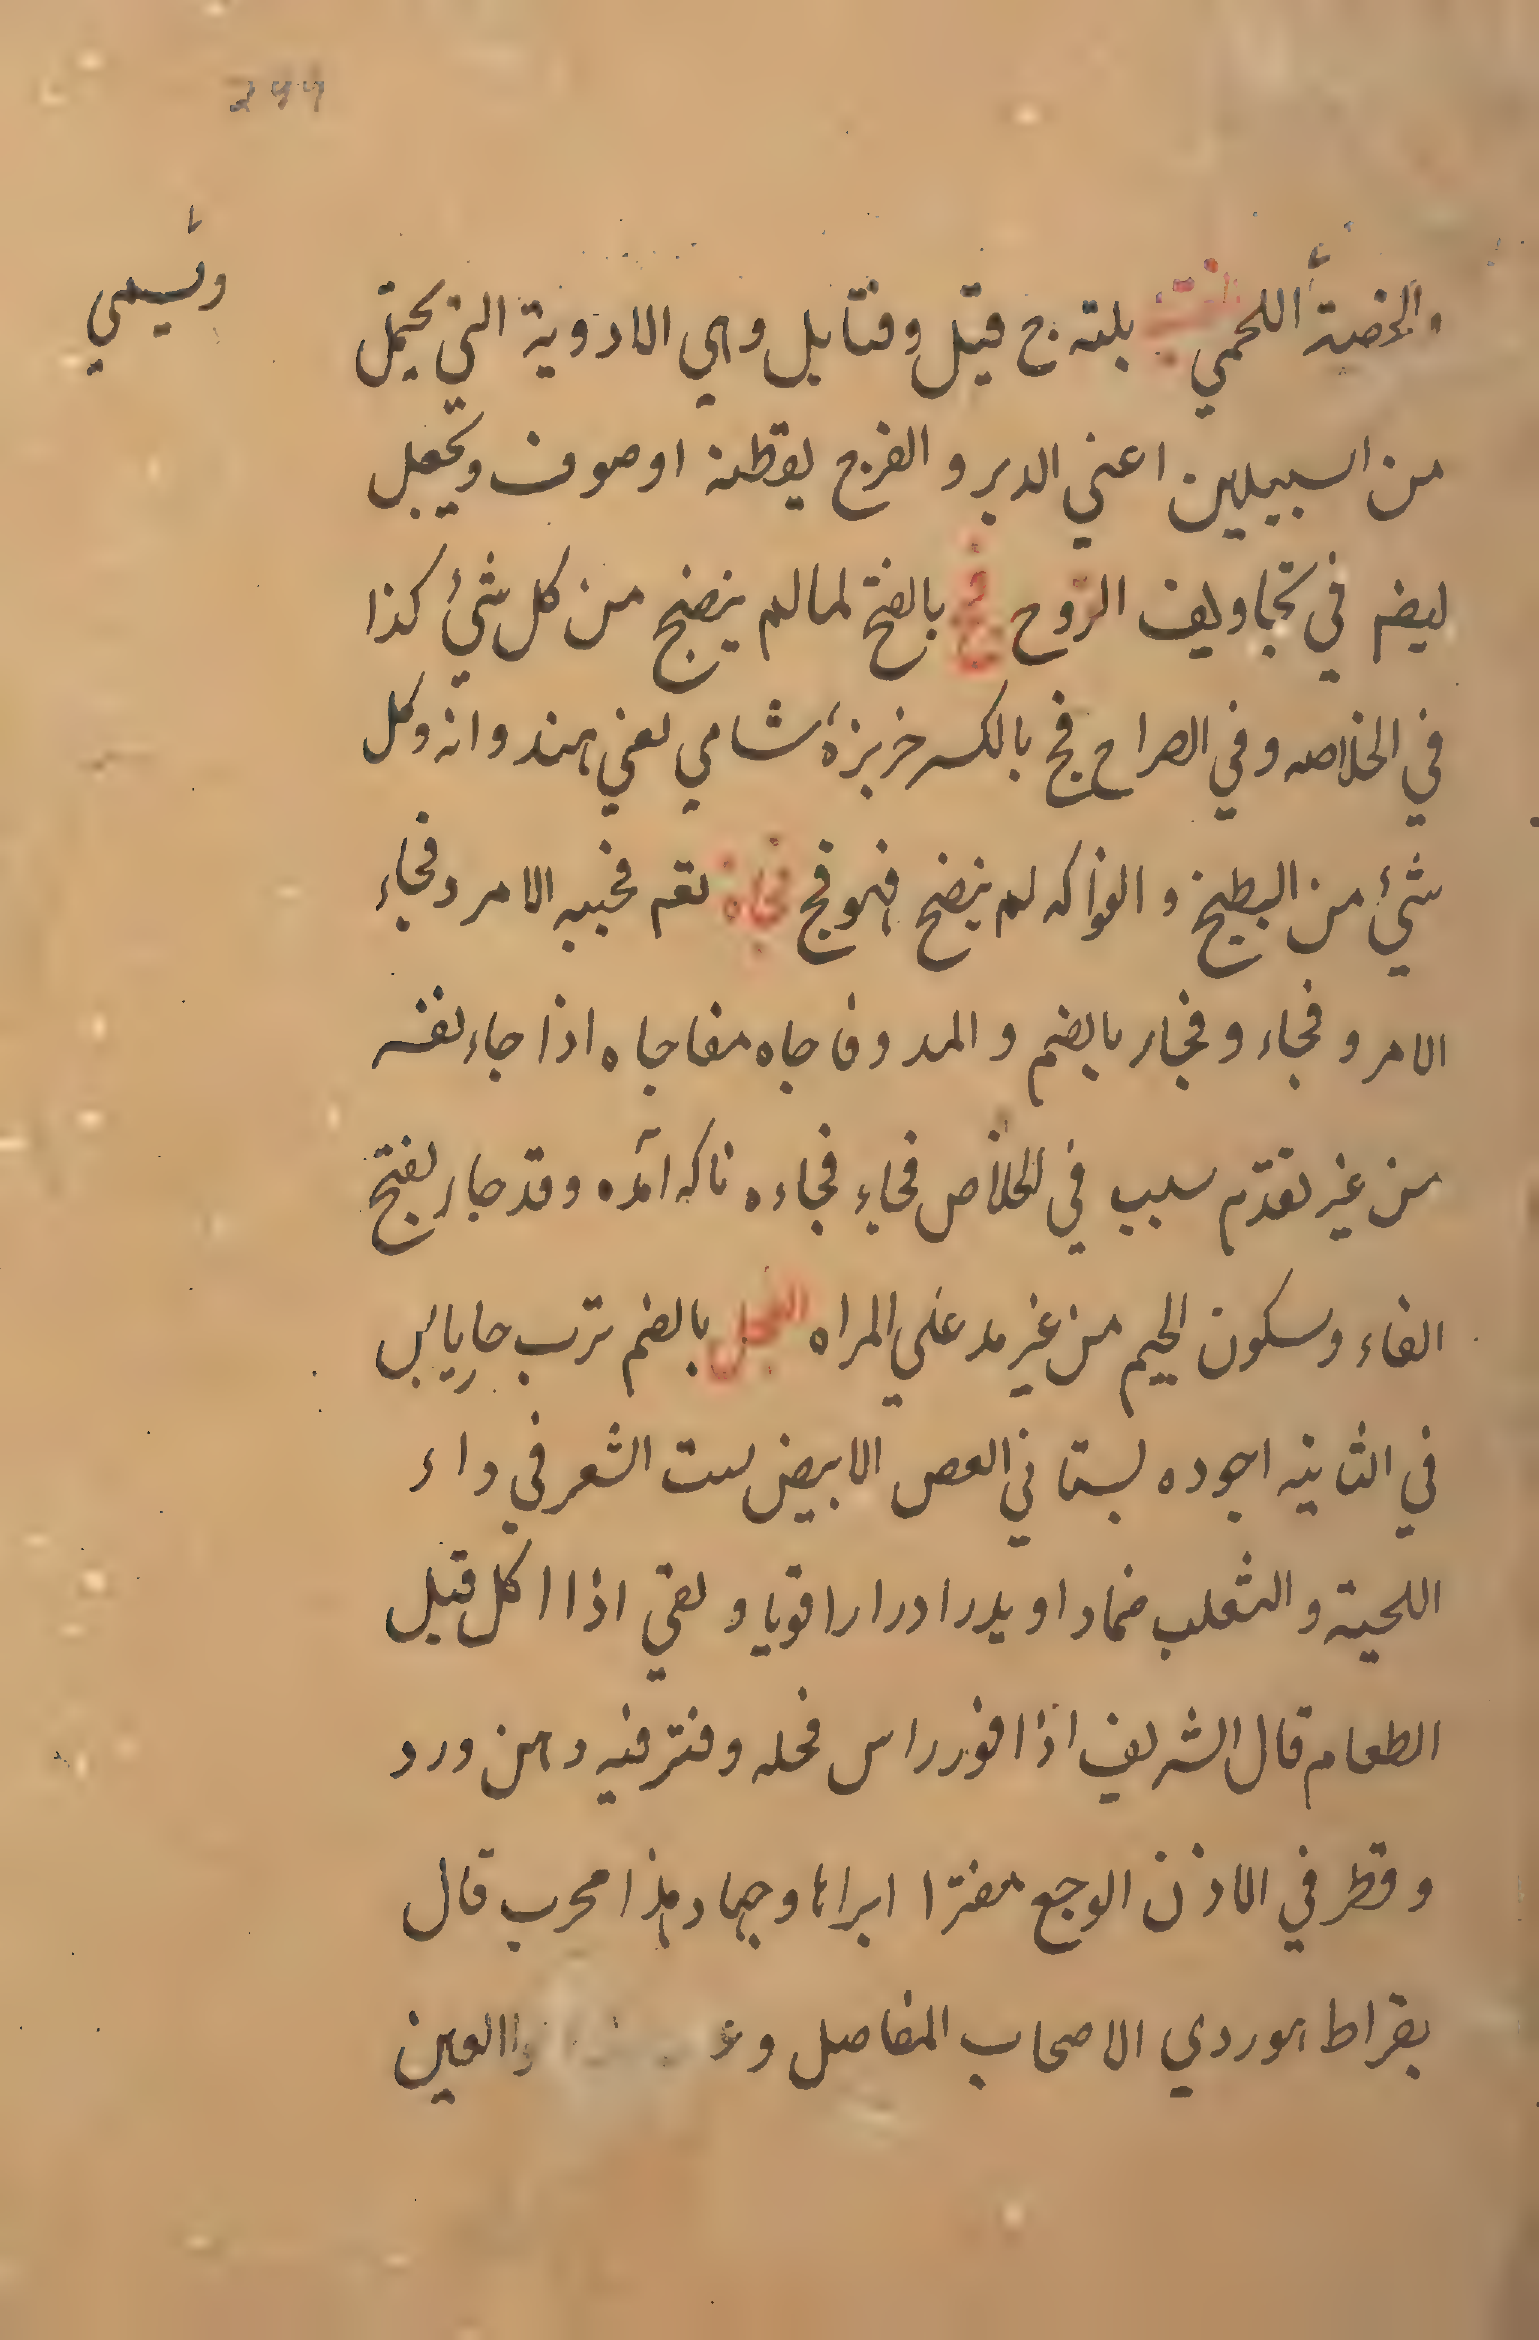 299
ويسمي
والخصية اللحمي بلته ج فتيل وفتايل وهي الادوية التي يحتمل
من السبيلين اعني الدبر و الفرج بقطنة او صوف ويجعل
ليضم في تجاويف الروح فج بالفتح لما لم ينضج من كل شئ كذا
في الخلاصه وفي الصراح فج بالكسر خربزهٔ شامي يعني هندوانه وكل
شئ من البطيخ و الفواكه لم ينضج فهو فج فجاة يقم الامر وفجاء
الامر و فجاء و فجار بالضم و المد وفاجاه مفاجاه اذا جاء بغته
من غير تقدّم سبب في الخلاص فجاء فجاءه ناكه آمده وقد جار بفتح
الفاء وسكون الجيم من غير مد علي المراه الفجل بالضم ترب حار يابس
في الثانيه اجوده بستاني العص الابيض ست الشعر في داء
اللحية و الثعلب ضمادا ويدر ادرارا قويا و يقي اذا اكل قبل
الطعام قال الشريف اذا قور راس فجله وفتر فيه دهن ورد
وقطر في الاذن الوجع مفترا ابراها وجها وهذا مجرب قال
بقراط هو ردي الاصحاب المفاصل و العين